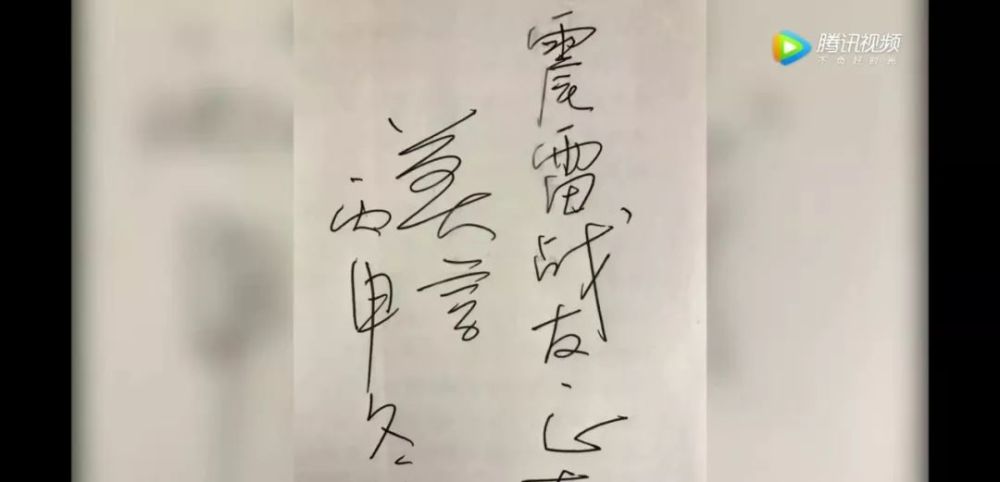 震雷战友、正
美言
丙申冬
腾讯视频
不负好时光